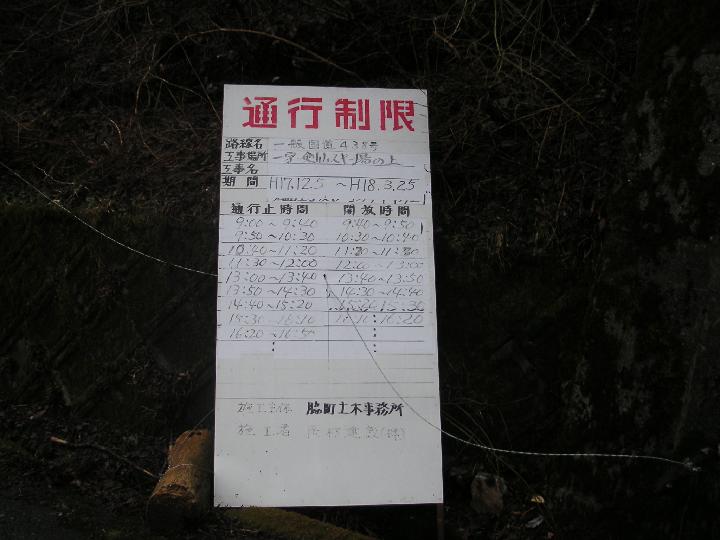 通行制限
路線名 一般国道438号
工事場所 スキー場の上
工事名
期間 H17.12.5 ~ H18.3.25
通行止時間 開放時間
9:00 ~ 9:40 9:40 ~ 9:50
9:50 ~ 10:30 10:30 ~ 10:40
10:40 ~ 11:20 11:20 ~ 11:30
11:30 ~ 12:00 12:00 ~ 13:00
13:00 ~ 13:40 13:40 ~ 13:50
13:50 ~ 14:30 14:30 ~ 14:40
14:40 ~ 15:20 15:20 15:30
15:30 16:10 16:10 16:20
16:20 ~ 16:50
施工主体 脇町土木事務所
施工者 建設(株)